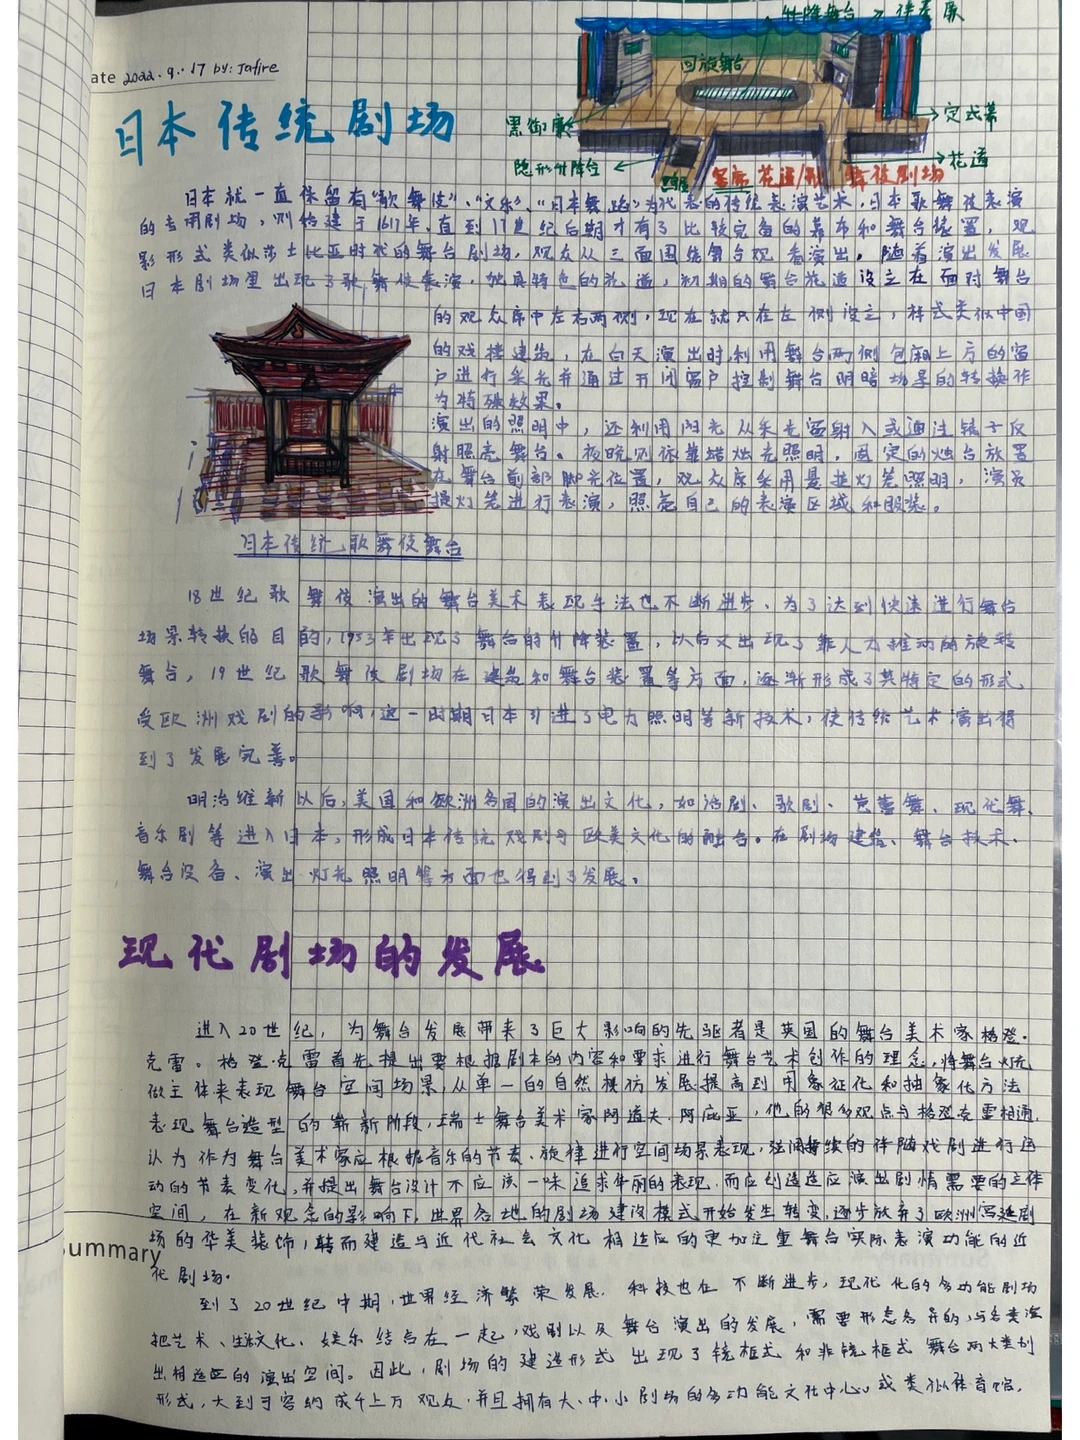 Date 2022.9.17 by: Jafire
升降舞台
回旋舞台
黑御簾
定式幕
隐形升降台
花道
日本传统剧场
日本就一直保留有“歌舞伎”、“文乐”、“日本舞踊”为代表的传统表演艺术,日本歌舞伎表演
的专用剧场,则始建于1617年,直到17世纪后期才有了比较完备的幕布和舞台装置,观
影形式类似莎士比亚时代的舞台剧场,观众从三面围绕舞台观看演出。随着演出发展
日本剧场里出现了歌舞伎表演,独具特色的花道,初期的舞台花道设立在面对舞台
的观众席中左右两侧,现在就只在左侧设立,样式类似中国
的戏楼建筑,在白天演出时利用舞台两侧包厢上方的窗
户进行采光并通过开闭窗户控制舞台明暗场景的转换作
为特殊效果。
演出的照明中,还利用阳光从采光窗射入或通过镜子反
射照亮舞台。夜晚则依靠蜡烛光照明,固定的烛台放置
在舞台前部脚光位置,观众席采用悬挂灯笼照明,演员
提灯笼进行表演,照亮自己的表演区域和服装。
日本传统歌舞伎舞台
18世纪歌舞伎演出的舞台美术表现手法也不断进步、为了达到快速进行舞台
场景转换的目的,1953年出现了舞台的升降装置,以后又出现了靠人力推动的旋转
舞台,19世纪歌舞伎剧场在建筑和舞台装置等方面,逐渐形成了其特定的形式
受欧洲戏剧的影响,这一时期日本引进了电力照明等新技术,使传统艺术演出得
到了发展完善。
明治维新以后,美国和欧洲各国的演出文化,如话剧、歌剧、芭蕾舞、现代舞、
音乐剧等进入日本,形成日本传统戏剧与欧美文化的融合。在剧场建筑、舞台技术、
舞台设备、演出灯光照明等方面也得到了发展。
现代剧场的发展
进入20世纪,为舞台发展带来了巨大影响的先驱者是英国的舞台美术家格登·
克雷。格登·克雷首先提出要根据剧本的内容和要求进行舞台艺术创作的理念,将舞台灯光
做主体来表现舞台空间场景,从单一的自然模仿发展提高到用象征化和抽象化方法
表现舞台造型的崭新阶段,瑞士舞台美术家阿道夫·阿庇亚,他的很多观点与格登克雷相通,
认为作为舞台美术家应根据音乐的节奏、旋律进行空间场景表现,强调持续的伴随戏剧进行运
动的节奏变化,并提出舞台设计不应该一味追求华丽的表现,而应创造适应演出剧情需要的立体
空间,在新观念的影响下,世界各地的剧场建设模式开始发生转变,逐步放弃了欧洲宫廷剧
场的华美装饰,转而建造与近代社会文化相适应的更加注重舞台实际表演功能的近
代剧场。
Summary
到了20世纪中期,世界经济繁荣发展,科技也在不断进步,现代化的多功能剧场
把艺术、生活文化、娱乐结合在一起,戏剧以及舞台演出的发展,需要形态各异的,与各类演
出相适应的演出空间。因此,剧场的建造形式出现了镜框式和非镜框式舞台两大类别
形式,大到可容纳成千上万观众,并且拥有大、中、小剧场的多功能文化中心,或类似体育馆,